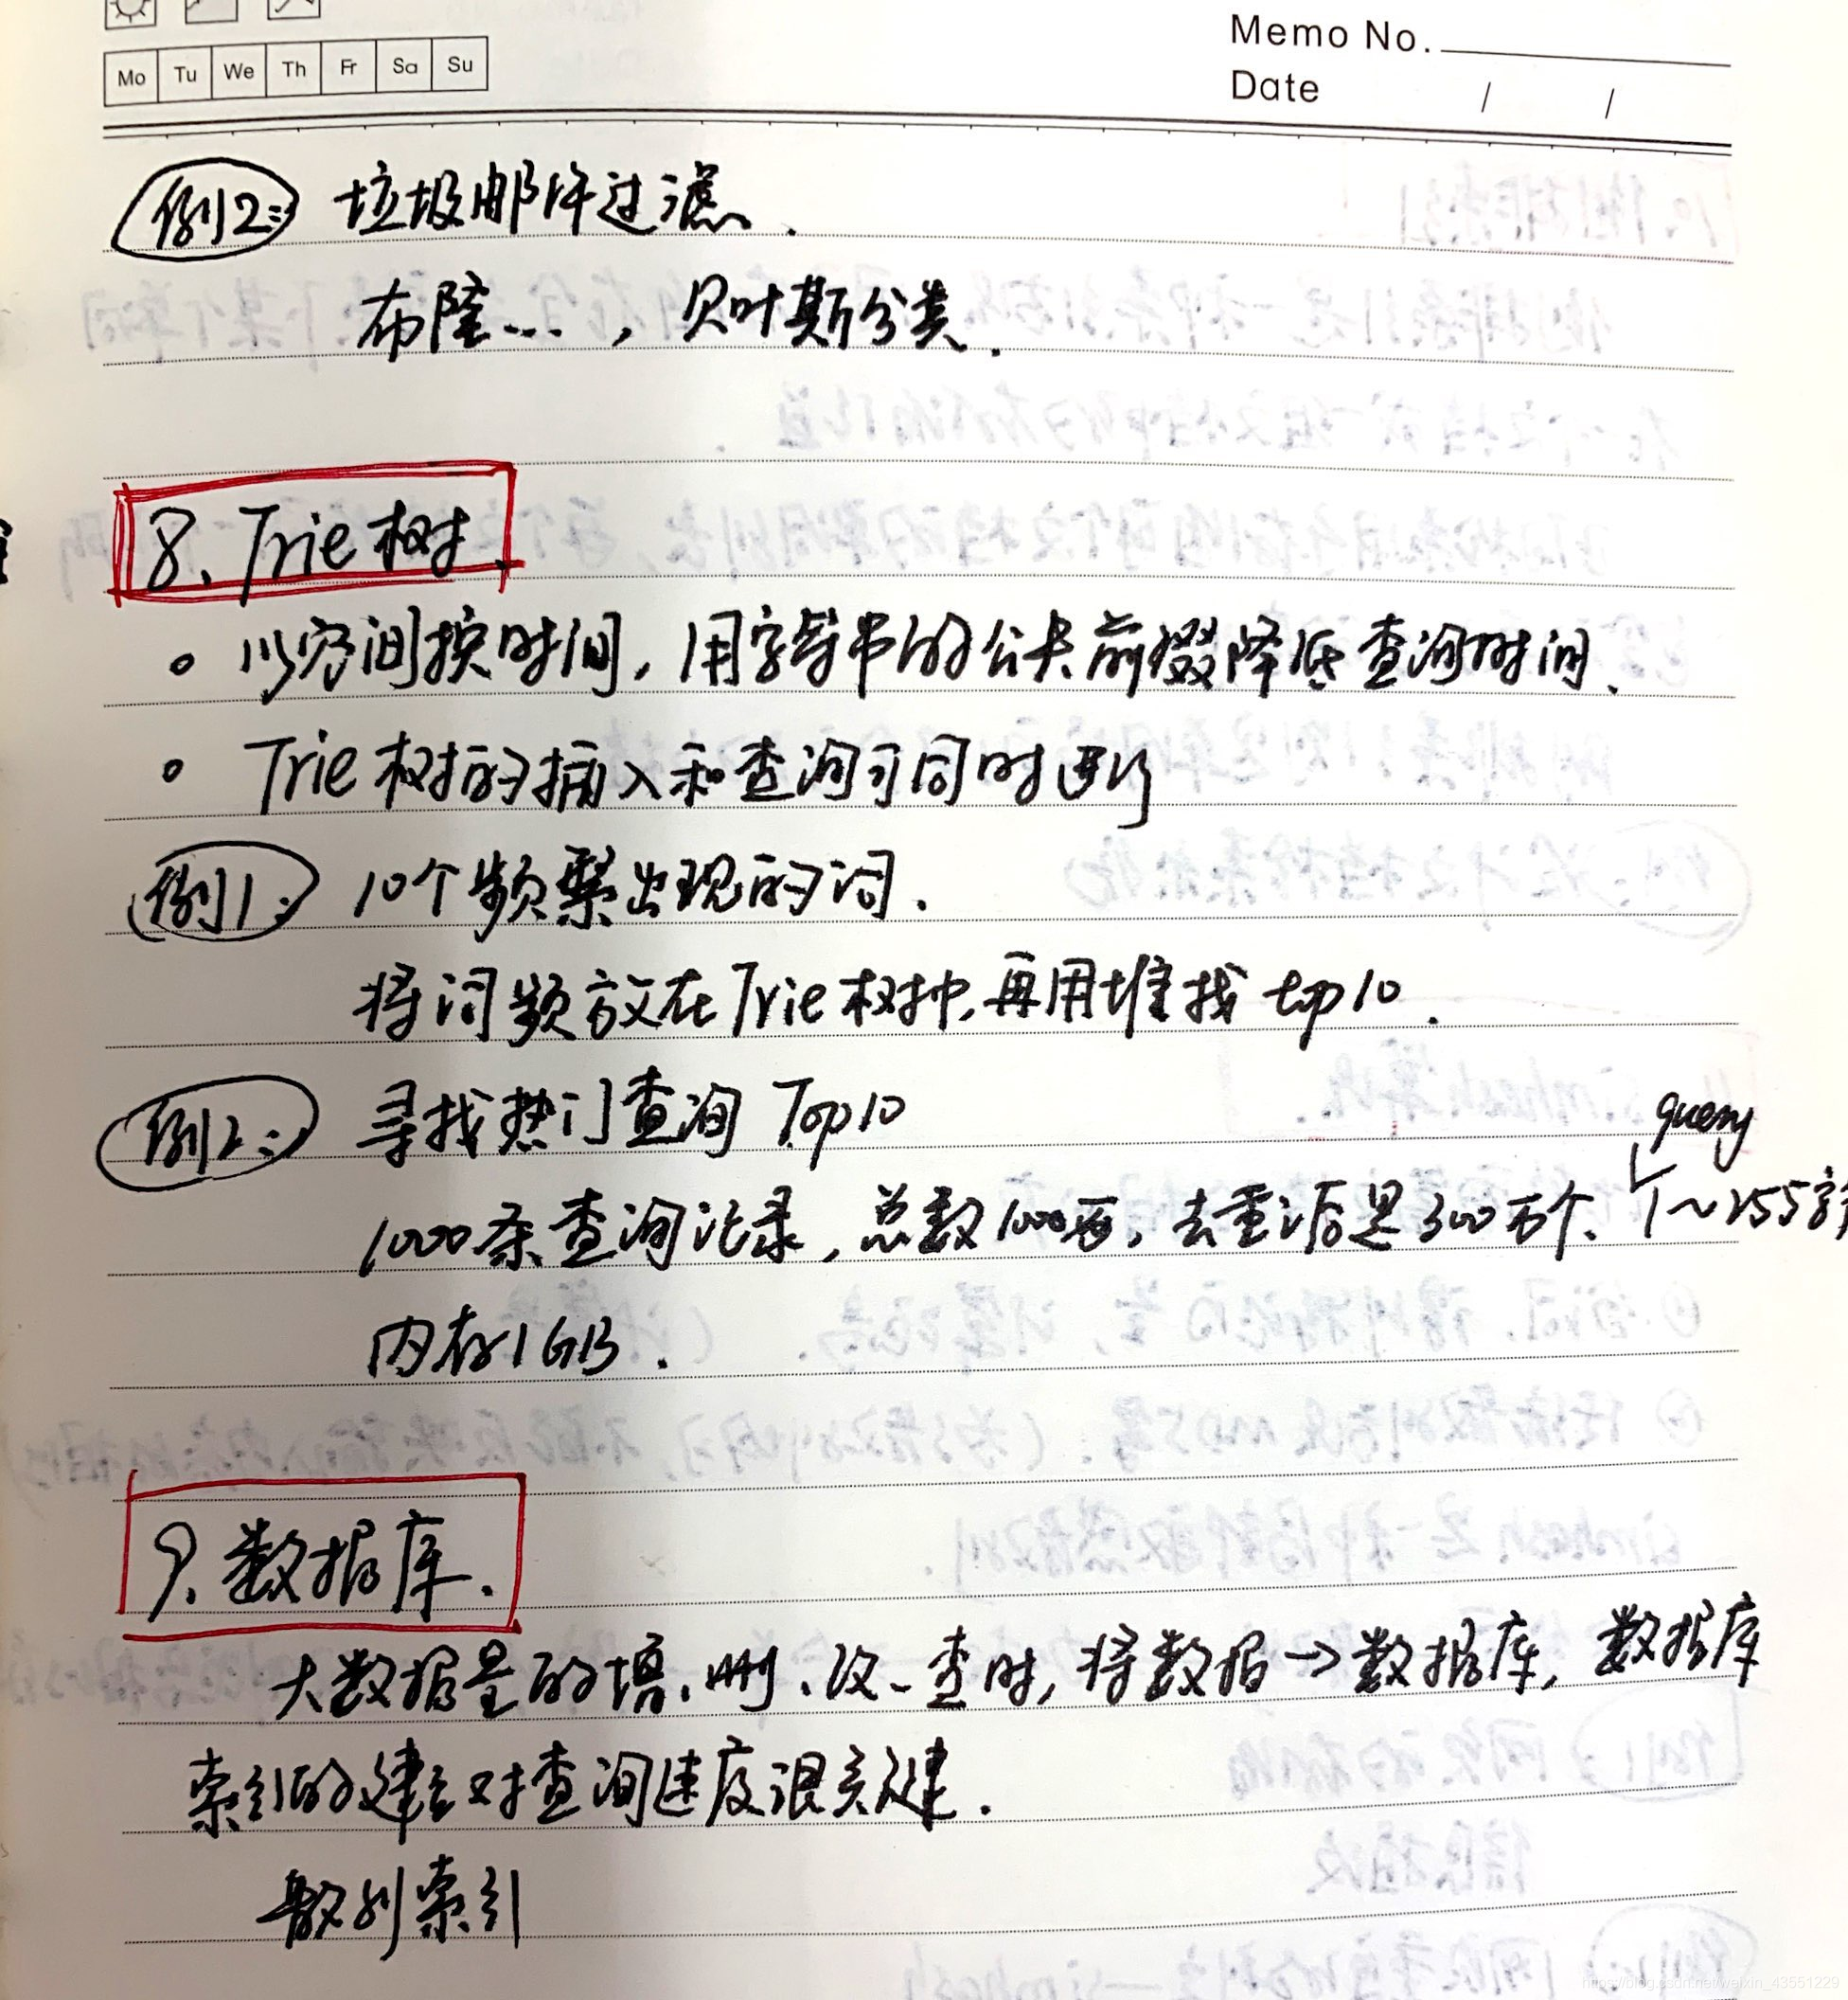 Memo No.
Mo Tu We Th Fr Sa Su
Date / /
例2: 垃圾邮件过滤.
布隆... , 贝叶斯分类.
8. Trie树.
。以空间换时间, 用字符串的公共前缀降低查询时间.
。Trie树的插入和查询可同时进行
例1: 10个频繁出现的词.
将词频放在Trie树中, 再用堆找 top10.
例2: 寻找热门查询 Top10
query
1000条查询记录, 总数1000万, 去重后是300万个. 1~255字
内存1GB.
9. 数据库.
大数据量的增、删、改、查时, 将数据→数据库, 数据库
索引的建立对查询速度很关键.
散列索引
https://blog.csdn.net/weixin_43551229